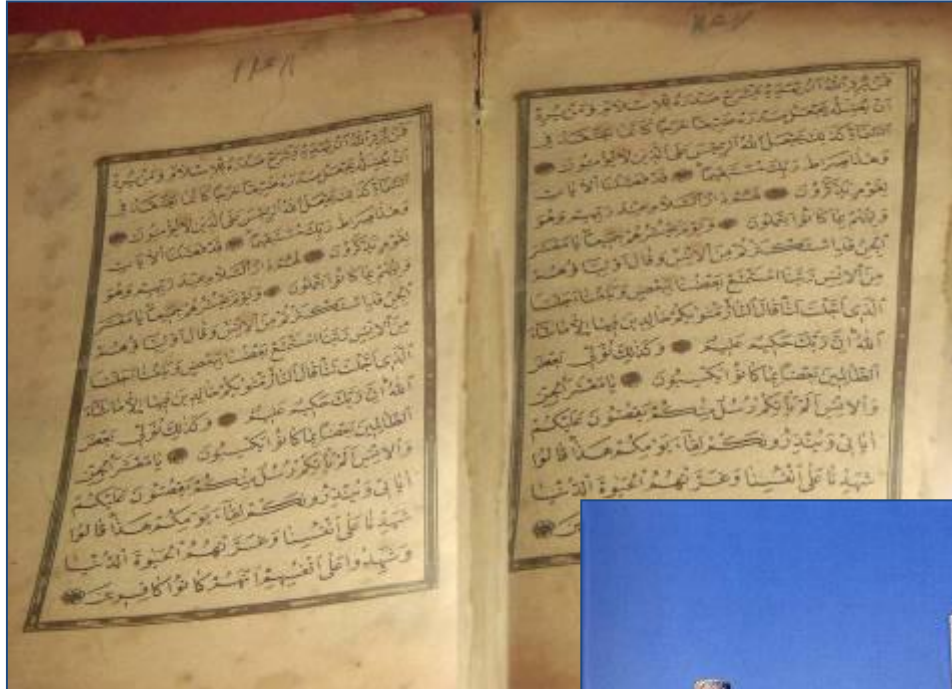 فَمَنْ يُرِدِ اللهُ أَنْ يَهْدِيَهُ يَشْرَحْ صَدْرَهُ لِلْاِسْلَامِ وَمَنْ يُرِدْ
أَنْ يُضِلَّهُ يَجْعَلْ صَدْرَهُ ضَيِّقًا حَرَجًا كَأَنَّمَا يَصَّعَّدُ فِي
السَّمَاءِ كَذٰلِكَ يَجْعَلُ اللهُ الرِّجْسَ عَلَى الَّذِينَ لَا يُؤْمِنُونَ
وَهٰذَا صِرَاطُ رَبِّكَ مُسْتَقِيمًا قَدْ فَصَّلْنَا الْاٰيَاتِ
لِقَوْمٍ يَذَّكَّرُونَ لَهُمْ دَارُ السَّلَامِ عِنْدَ رَبِّهِمْ وَهُوَ
وَلِيُّهُمْ بِمَا كَانُوا يَعْمَلُونَ وَيَوْمَ يَحْشُرُهُمْ جَمِيعًا يَا مَعْشَرَ
الْجِنِّ قَدِ اسْتَكْثَرْتُمْ مِنَ الْاِنْسِ وَقَالَ أَوْلِيَاؤُهُمْ
مِنَ الْاِنْسِ رَبَّنَا اسْتَمْتَعَ بَعْضُنَا بِبَعْضٍ وَبَلَغْنَا أَجَلَنَا
الَّذِي أَجَّلْتَ لَنَا قَالَ النَّارُ مَثْوٰيكُمْ خَالِدِينَ فِيهَا إِلَّا مَا شَاءَ
اللهُ إِنَّ رَبَّكَ حَكِيمٌ عَلِيمٌ وَكَذٰلِكَ نُوَلِّي بَعْضَ
الظَّالِمِينَ بَعْضًا بِمَا كَانُوا يَكْسِبُونَ يَا مَعْشَرَ الْجِنِّ
وَالْاِنْسِ أَلَمْ يَأْتِكُمْ رُسُلٌ مِنْكُمْ يَقُصُّونَ عَلَيْكُمْ
اٰيَاتِي وَيُنْذِرُونَكُمْ لِقَاءَ يَوْمِكُمْ هٰذَا قَالُوا
شَهِدْنَا عَلٰى أَنْفُسِنَا وَغَرَّتْهُمُ الْحَيٰوةُ الدُّنْيَا
فَمَنْ يُرِدِ اللهُ أَنْ يَهْدِيَهُ يَشْرَحْ صَدْرَهُ لِلْاِسْلَامِ وَمَنْ يُرِدْ
أَنْ يُضِلَّهُ يَجْعَلْ صَدْرَهُ ضَيِّقًا حَرَجًا كَأَنَّمَا يَصَّعَّدُ فِي
السَّمَاءِ كَذٰلِكَ يَجْعَلُ اللهُ الرِّجْسَ عَلَى الَّذِينَ لَا يُؤْمِنُونَ
وَهٰذَا صِرَاطُ رَبِّكَ مُسْتَقِيمًا قَدْ فَصَّلْنَا الْاٰيَاتِ
لِقَوْمٍ يَذَّكَّرُونَ لَهُمْ دَارُ السَّلَامِ عِنْدَ رَبِّهِمْ وَهُوَ
وَلِيُّهُمْ بِمَا كَانُوا يَعْمَلُونَ وَيَوْمَ يَحْشُرُهُمْ جَمِيعًا يَا مَعْشَرَ
الْجِنِّ قَدِ اسْتَكْثَرْتُمْ مِنَ الْاِنْسِ وَقَالَ أَوْلِيَاؤُهُمْ
مِنَ الْاِنْسِ رَبَّنَا اسْتَمْتَعَ بَعْضُنَا بِبَعْضٍ وَبَلَغْنَا أَجَلَنَا
الَّذِي أَجَّلْتَ لَنَا قَالَ النَّارُ مَثْوٰيكُمْ خَالِدِينَ فِيهَا إِلَّا مَا شَاءَ
اللهُ إِنَّ رَبَّكَ حَكِيمٌ عَلِيمٌ وَكَذٰلِكَ نُوَلِّي بَعْضَ
الظَّالِمِينَ بَعْضًا بِمَا كَانُوا يَكْسِبُونَ يَا مَعْشَرَ الْجِنِّ
وَالْاِنْسِ أَلَمْ يَأْتِكُمْ رُسُلٌ مِنْكُمْ يَقُصُّونَ عَلَيْكُمْ
اٰيَاتِي وَيُنْذِرُونَكُمْ لِقَاءَ يَوْمِكُمْ هٰذَا قَالُوا
شَهِدْنَا عَلٰى أَنْفُسِنَا وَغَرَّتْهُمُ الْحَيٰوةُ الدُّنْيَا
وَشَهِدُوا عَلٰى أَنْفُسِهِمْ أَنَّهُمْ كَانُوا كَافِرِينَ